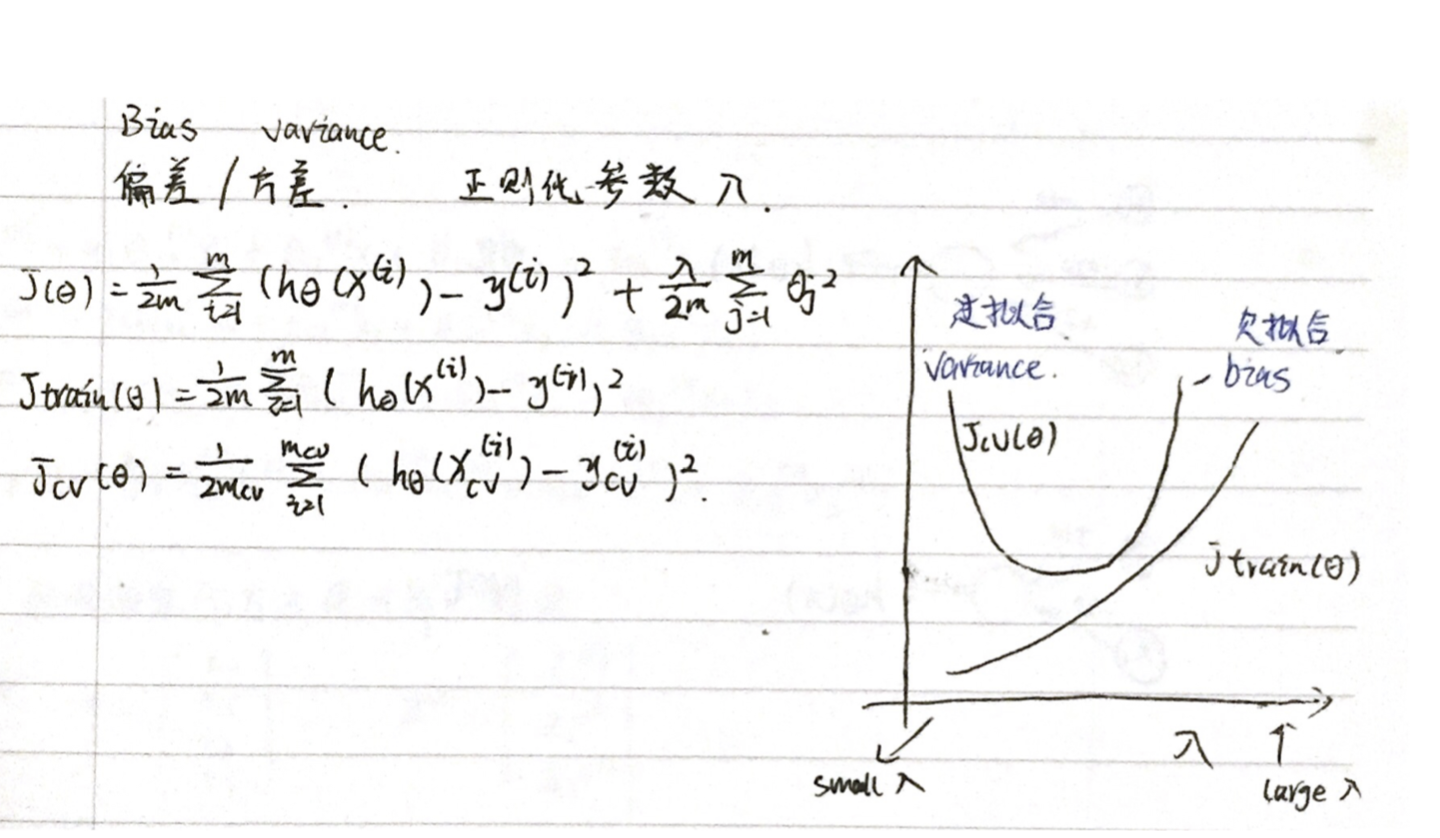 Bias variance.
偏差/方差. 正则化参数 λ.
J(θ) = 1/2m ∑_{i=1}^{m} (hθ(x^(i)) - y^(i))^2 + λ/2m ∑_{j=1}^{m} θj^2
Jtrain(θ) = 1/2m ∑_{i=1}^{m} (hθ(x^(i)) - y^(i))^2
Jcv(θ) = 1/2mcv ∑_{i=1}^{mcv} (hθ(x_cv^(i)) - y_cv^(i))^2.
过拟合
variance.
欠拟合
- bias
Jcv(θ)
Jtrain(θ)
λ
small λ
large λ